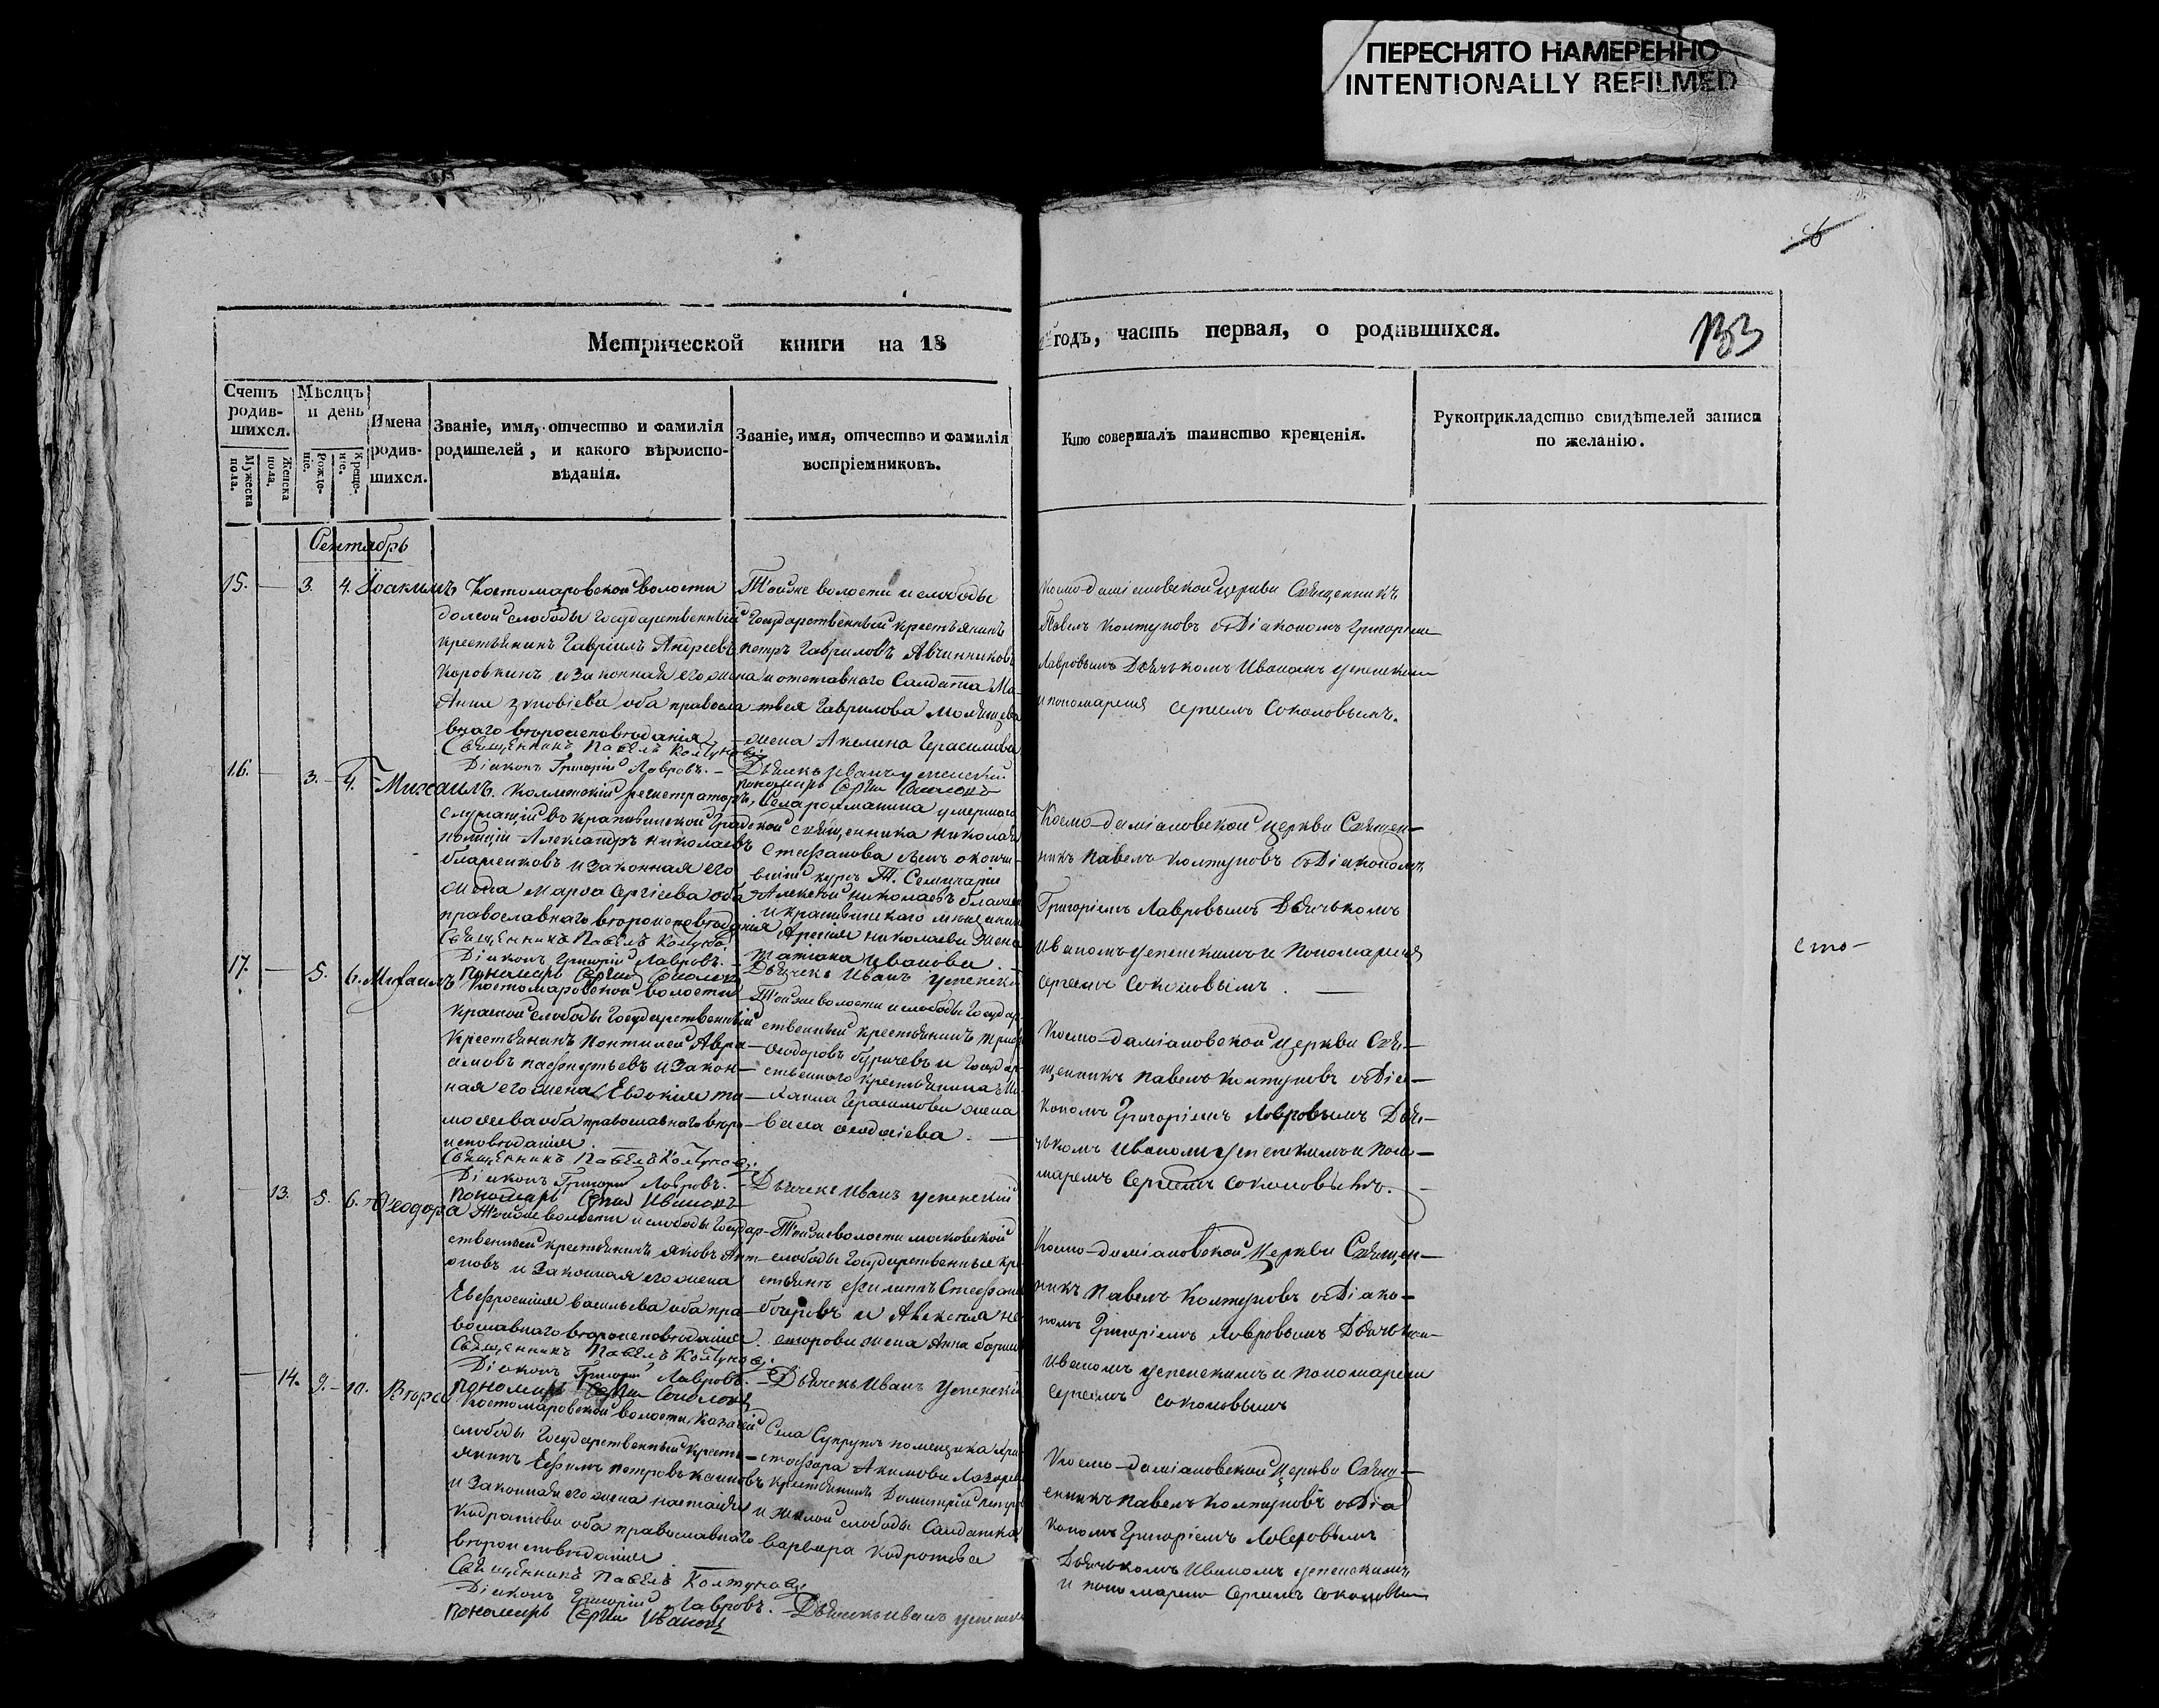 ПЕРЕСНЯТО НАМЕРЕННО
INTENTIONALLY REFILMED
6
Метрической книги на 18
годъ, часть первая, о родившихся.
133
Счетъ родив-шихся.
Мѣсяцъ и день
Имена родив-шихся.
Званіе, имя, отчество и фамилія
родителей, и какого вѣроиспо-
вѣданія.
Званіе, имя, отчество и фамилія
воспріемниковъ.
Кто совершалъ таинство крещенія.
Рукоприкладство свидѣтелей записи
по желанію.
Мужеска пола.
Женска пола.
Рожде-ніе.
Креще-ніе.
Сентябрь
15. — 3. 4. Іоакимъ
Костомаровской волости
слободы Государственный
крестьянинъ Гавріилъ Андреевъ
Коровкинъ и законная его жена
Анна Зиновіева оба правосла-
внаго вѣроисповѣданія
Священникъ Павелъ Колтуновъ
Діаконъ Григорій Лавровъ. —
Тойже волости и слободы
Государственный крестьянинъ
Петръ Гавриловъ Авчинниковъ
и отставнаго Салдата Ма-
твея Гаврилова
жена Акелина Герасимова
Дьячекъ Иванъ Успенскій
Космо-даміановской церкви Священникъ
Павелъ Колтуновъ съ Діакономъ Григоріемъ
Лавровымъ Дьячькомъ Иваномъ Успенскимъ
и пономаремъ Сергіемъ Соколовымъ.
16. — 3. 4. Михаилъ.
Коллежскій регистраторъ,
служащій въ Крапивинской Градской
полиціи Александръ Николаевъ
и законная его
жена Марѳа Сергіева оба
православнаго вѣроисповѣданія
Священникъ Павелъ Колтуновъ
Діаконъ Григорій Лавровъ.
пономарь Сергій Соколовъ
Села умершаго
священника Николая
Стефанова сынъ окончи-
вшій курсъ Т. Семинаріи
Алексѣй Николаевъ
и крапивинскаго мещанина
Николаева жена
Татіана Иванова.
Дьячекъ Иванъ Успенскій
Космо-даміановской церкви Священ-
никъ Павелъ Колтуновъ съ Діакономъ
Григоріемъ Лавровымъ Дьячькомъ
Иваномъ Успенскимъ и Пономаремъ
Сергіемъ Соколовымъ.
сто-
17. — 5. 6. Михаилъ
Костомаровской волости
Красной слободы Государственный
крестьянинъ Авра-
амовъ Пафнутьевъ и закон-
ная его жена Евдокія Ти-
моѳеева оба православнаго вѣро-
исповѣданія.
Священникъ Павелъ Колтуновъ.
Діаконъ Григорій Лавровъ. —
Тойже волости и слободы Государ-
ственный крестьянинъ
Ѳеодоровъ и Государ-
ственнаго крестьянина Ми-
хаила Герасимова жена
Дьячекъ Иванъ Успенскій
Космо-даміановской церкви Свя-
щенникъ Павелъ Колтуновъ съ Діа-
кономъ Григоріемъ Лавровымъ Дья-
чькомъ Иваномъ Успенскимъ и Поно-
маремъ Сергіемъ Соколовымъ.
— 13. 5. 6. Ѳеодора
Тойже волости и слободы Государ-
ственный крестьянинъ Яковъ Ант-
оновъ и законная его жена
Евфросинія Васильева оба пра-
вославнаго вѣроисповѣданія.
Священникъ Павелъ Колтуновъ.
Діаконъ Григорій Лавровъ. —
Тойже волости московской
слободы Государственные кре-
стьянъ Филиппъ Стефановъ
и Алексѣя Не-
сторова жена Анна
Дьячекъ Иванъ Успенскій
Космо-даміановской церкви Священ-
никъ Павелъ Колтуновъ съ Діако-
номъ Григоріемъ Лавровымъ Дьячькомъ
Иваномъ Успенскимъ и пономаремъ
Сергіемъ Соколовымъ
— 14. 9. 10.
Костомаровской волости Казачей
слободы Государственный кресть-
янинъ Ефимъ Петровъ
и законная его жена Настасія
Кодратова оба православнаго
вѣроисповѣданія.
Священникъ Павелъ Колтуновъ
Діаконъ Григорій Лавровъ.
пономарь Сергій
Села Супрутъ помещика Хри-
стофора Акимова Лазарева
крестьянинъ Димитрій Петровъ
и слободы Салдатка
Варвара Кодротова
Дьячекъ Иванъ Успенскій
Космо-даміановской церкви Свящ-
енникъ Павелъ Колтуновъ съ Діа
кономъ Григоріемъ Лавровымъ
Дьячькомъ Иваномъ Успенскимъ
и пономаремъ Сергіемъ Соколовымъ